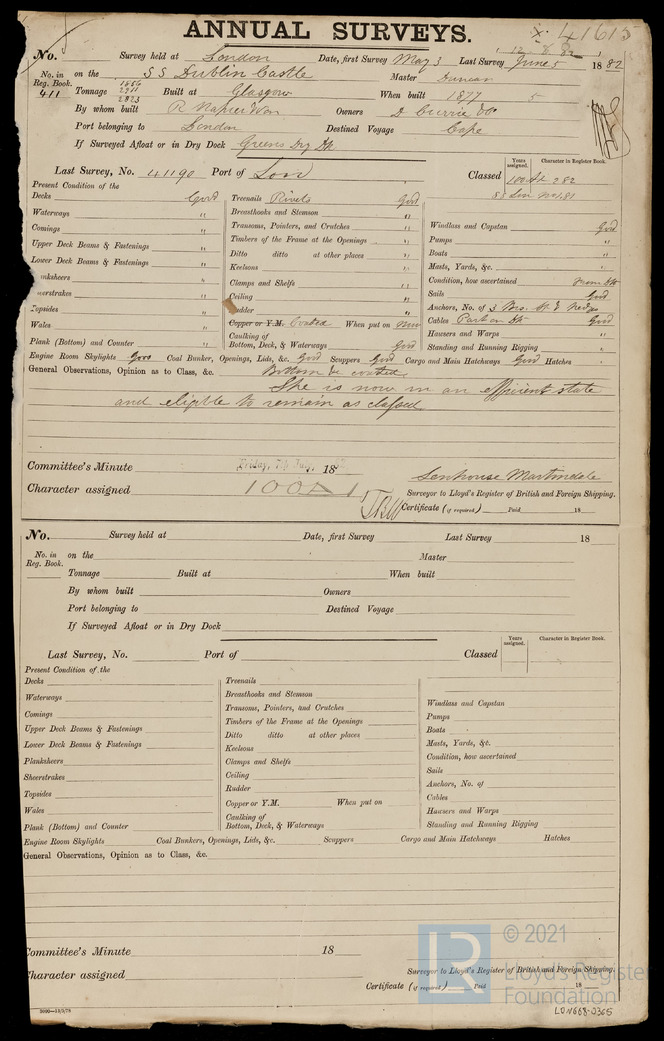 ANNUAL SURVEYS.
x. 41615
12 . 8 . 82
No. Survey held at London Date, first Survey May 3 Last Survey June 5 1882
No. in on the SS Dublin Castle Master Duncan
Reg. Book.
411 Tonnage 2911 Built at Glasgow When built 1877 5
2873
By whom built R Napier & Son Owners D Currie & Co
Port belonging to London Destined Voyage Cape
If Surveyed Afloat or in Dry Dock Greens Dry Dk
Last Survey, No. 41190 Port of Lon Classed
Years assigned. Character in Register Book.
100A1 2 82
SS Lon No 1.81
Present Condition of the
Decks Good
Waterways "
Comings "
Upper Deck Beams & Fastenings "
Lower Deck Beams & Fastenings "
nksheers "
eerstrakes "
Topsides "
Wales "
Plank (Bottom) and Counter "
Treenails Rivets Good
Breasthooks and Stemson "
Transoms, Pointers, and Crutches "
Timbers of the Frame at the Openings "
Ditto ditto at other places "
Keelsons "
Clamps and Shelfs "
Ceiling "
Rudder "
Copper or Y.M. Coated When put on now
Caulking of
Bottom, Deck, & Waterways Good
Windlass and Capstan Good
Pumps "
Boats "
Masts, Yards, &c. "
Condition, how ascertained from Dk
Sails Good
Anchors, No. of 3
Cables Part on Dk Good
Hawsers and Warps "
Standing and Running Rigging "
Engine Room Skylights Good Coal Bunker, Openings, Lids, &c. Good Scuppers Good Cargo and Main Hatchways Good Hatches "
General Observations, Opinion as to Class, &c. Bottom coated
She is now in an efficient state
and eligible to remain as classed
Committee's Minute Friday, 7th July, 1882
Character assigned 100A1
Senhouse Martindale
Surveyor to Lloyd's Register of British and Foreign Shipping.
Certificate (if required) Paid 18
No. Survey held at Date, first Survey Last Survey 18
No. in on the Master
Reg. Book.
Tonnage Built at When built
By whom built Owners
Port belonging to Destined Voyage
If Surveyed Afloat or in Dry Dock
Last Survey, No. Port of Classed
Years assigned. Character in Register Book.
Present Condition of the
Decks
Waterways
Comings
Upper Deck Beams & Fastenings
Lower Deck Beams & Fastenings
Planksheers
Sheerstrakes
Topsides
Wales
Plank (Bottom) and Counter
Treenails
Breasthooks and Stemson
Transoms, Pointers, and Crutches
Timbers of the Frame at the Openings
Ditto ditto at other places
Keelsons
Clamps and Shelfs
Ceiling
Rudder
Copper or Y.M. When put on
Caulking of
Bottom, Deck, & Waterways
Windlass and Capstan
Pumps
Boats
Masts, Yards, &c.
Condition, how ascertained
Sails
Anchors, No. of
Cables
Hawsers and Warps
Standing and Running Rigging
Engine Room Skylights Coal Bunkers, Openings, Lids, &c. Scuppers Cargo and Main Hatchways Hatches
General Observations, Opinion as to Class, &c.
Committee's Minute 18
Character assigned
Surveyor to Lloyd's Register of British and Foreign Shipping.
Certificate (if required) Paid 18
LR © 2021
Lloyd's Register
Foundation
LON668-0365